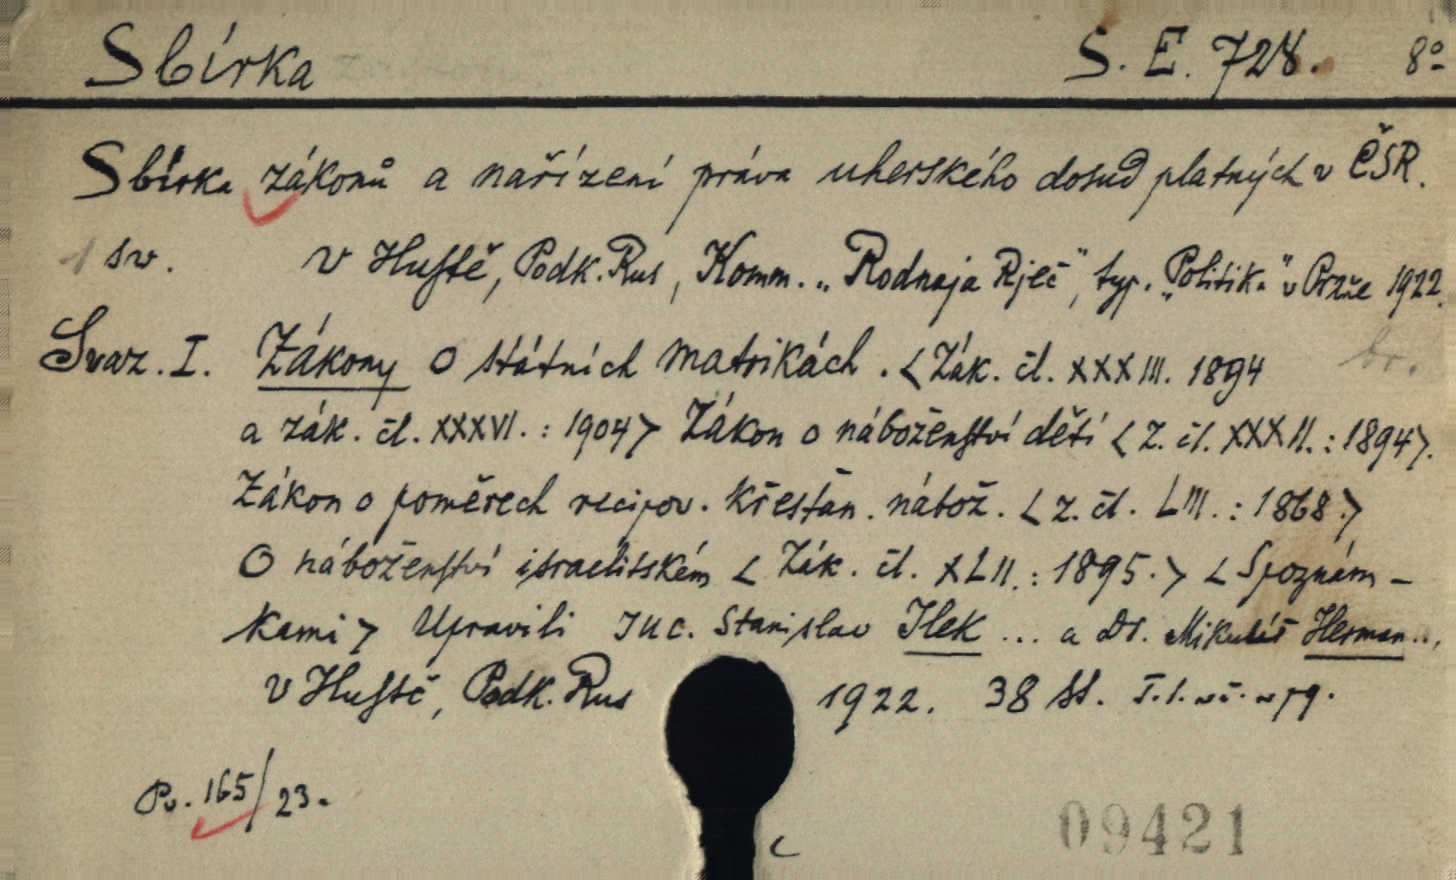 Sbírka S. E. 728. 8º
Sbírka zákonů a nařízení práva uherského dosud platných v ČSR.
1 sv. V Husstě, Podk. Rus, Komm. „Rodnaja Rječ", typ. „Politika" v Praze 1922.
Svaz. I. Zákony o státních matrikách. <Zák. čl. XXXIII. 1894 br.
a zák. čl. XXXVI. : 1904> Zákon o náboženství dětí <Z. čl. XXXII. : 1894>.
Zákon o poměrech recipov. křesťan. nábož. <z. čl. LIII. : 1868.>
O náboženství israelitském <Zák. čl. XLII. : 1895.> <S poznám-
kami> Upravili JUC. Stanislav Ilek ... a Dr. Mikuláš Herman...,
V Husstě, Podk. Rus 1922. 38 ss.
Pv. 165/23.
09421